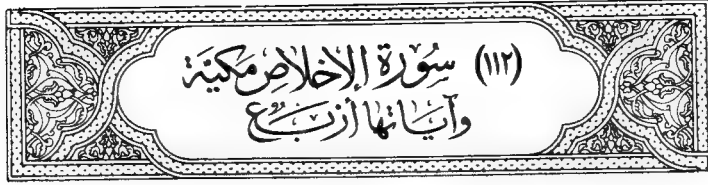 (١١٢) سُورَة الإخلاص مَكيَّة
وَآيَاتها أَرْبَع